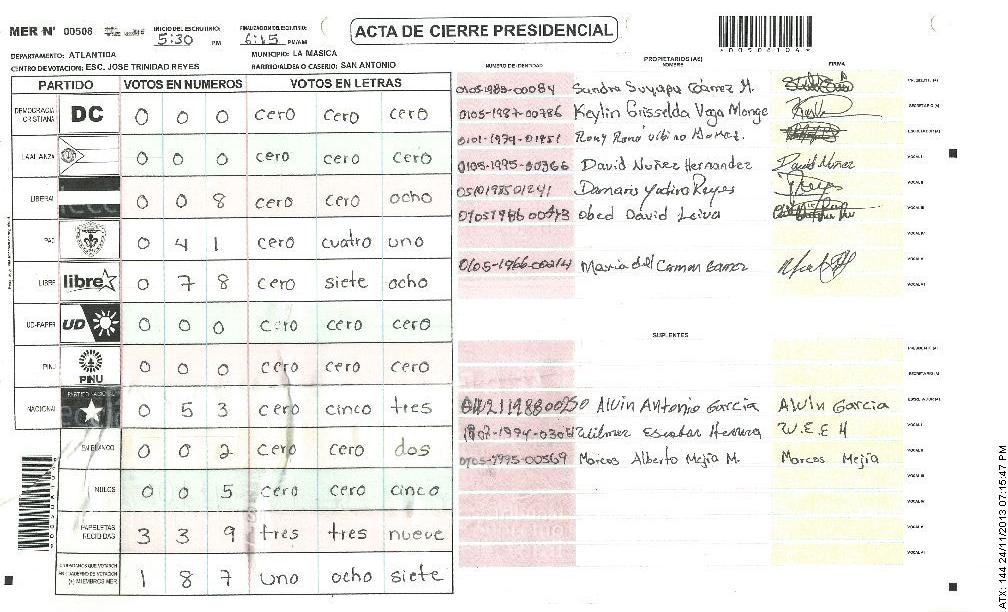 MER Nº 00508
INICIO DEL ESCRUTINIO:
5:30 PM
FINALIZACION DEL ESCRUTINIO:
6:15 PM/AM
ACTA DE CIERRE PRESIDENCIAL
DEPARTAMENTO: ATLANTIDA
MUNICIPIO: LA MASICA
CENTRO DE VOTACION: ESC. JOSE TRINIDAD REYES
BARRIO/ALDEA O CASERIO: SAN ANTONIO
PARTIDO VOTOS EN NUMEROS VOTOS EN LETRAS
DEMOCRACIA CRISTIANA DC 0 0 0 cero cero cero
LA ALIANZA 0 0 0 cero cero cero
LIBERAL 0 0 8 cero cero ocho
PAC 0 4 1 cero cuatro uno
LIBRE libre 0 7 8 cero siete ocho
UD-FAPER UD 0 0 0 cero cero cero
PINU PINU 0 0 0 cero cero cero
NACIONAL 0 5 3 cero cinco tres
EN BLANCO 0 0 2 cero cero dos
NULOS 0 0 5 cero cero cinco
PAPELETAS RECIBIDAS 3 3 9 tres tres nueve
CIUDADANOS QUE VOTARON EN CUADERNO DE VOTACION (+) MIEMBROS MER 1 8 7 uno ocho siete
PROPIETARIOS (AS)
NUMERO DE IDENTIDAD NOMBRE FIRMA
Sandra Suyapa M. PRESIDENTE (A)
0105-1987-00786 Keylin Grisselda Vega Monge SECRETARIO (A)
0101-1974-01951 Rony ESCRUTADOR (A)
0105-1995-00366 David Nuñez Hernandez David Nuñez VOCAL I
0510198501241 Damaris Yadira Reyes Reyes VOCAL II
Obed David Leiva VOCAL III
VOCAL IV
0105-1966-00214 Maria del Carmen VOCAL V
VOCAL VI
SUPLENTES
PRESIDENTE (A)
SECRETARIO (A)
Alvin Antonio Garcia Alvin Garcia ESCRUTADOR (A)
Wilmer Escobar Herrera W.E.E H VOCAL I
Marcos Alberto Mejia M. Marcos Mejia VOCAL II
VOCAL III
VOCAL IV
VOCAL V
VOCAL VI
ATX: 144 24/11/2013 07:15:47 PM